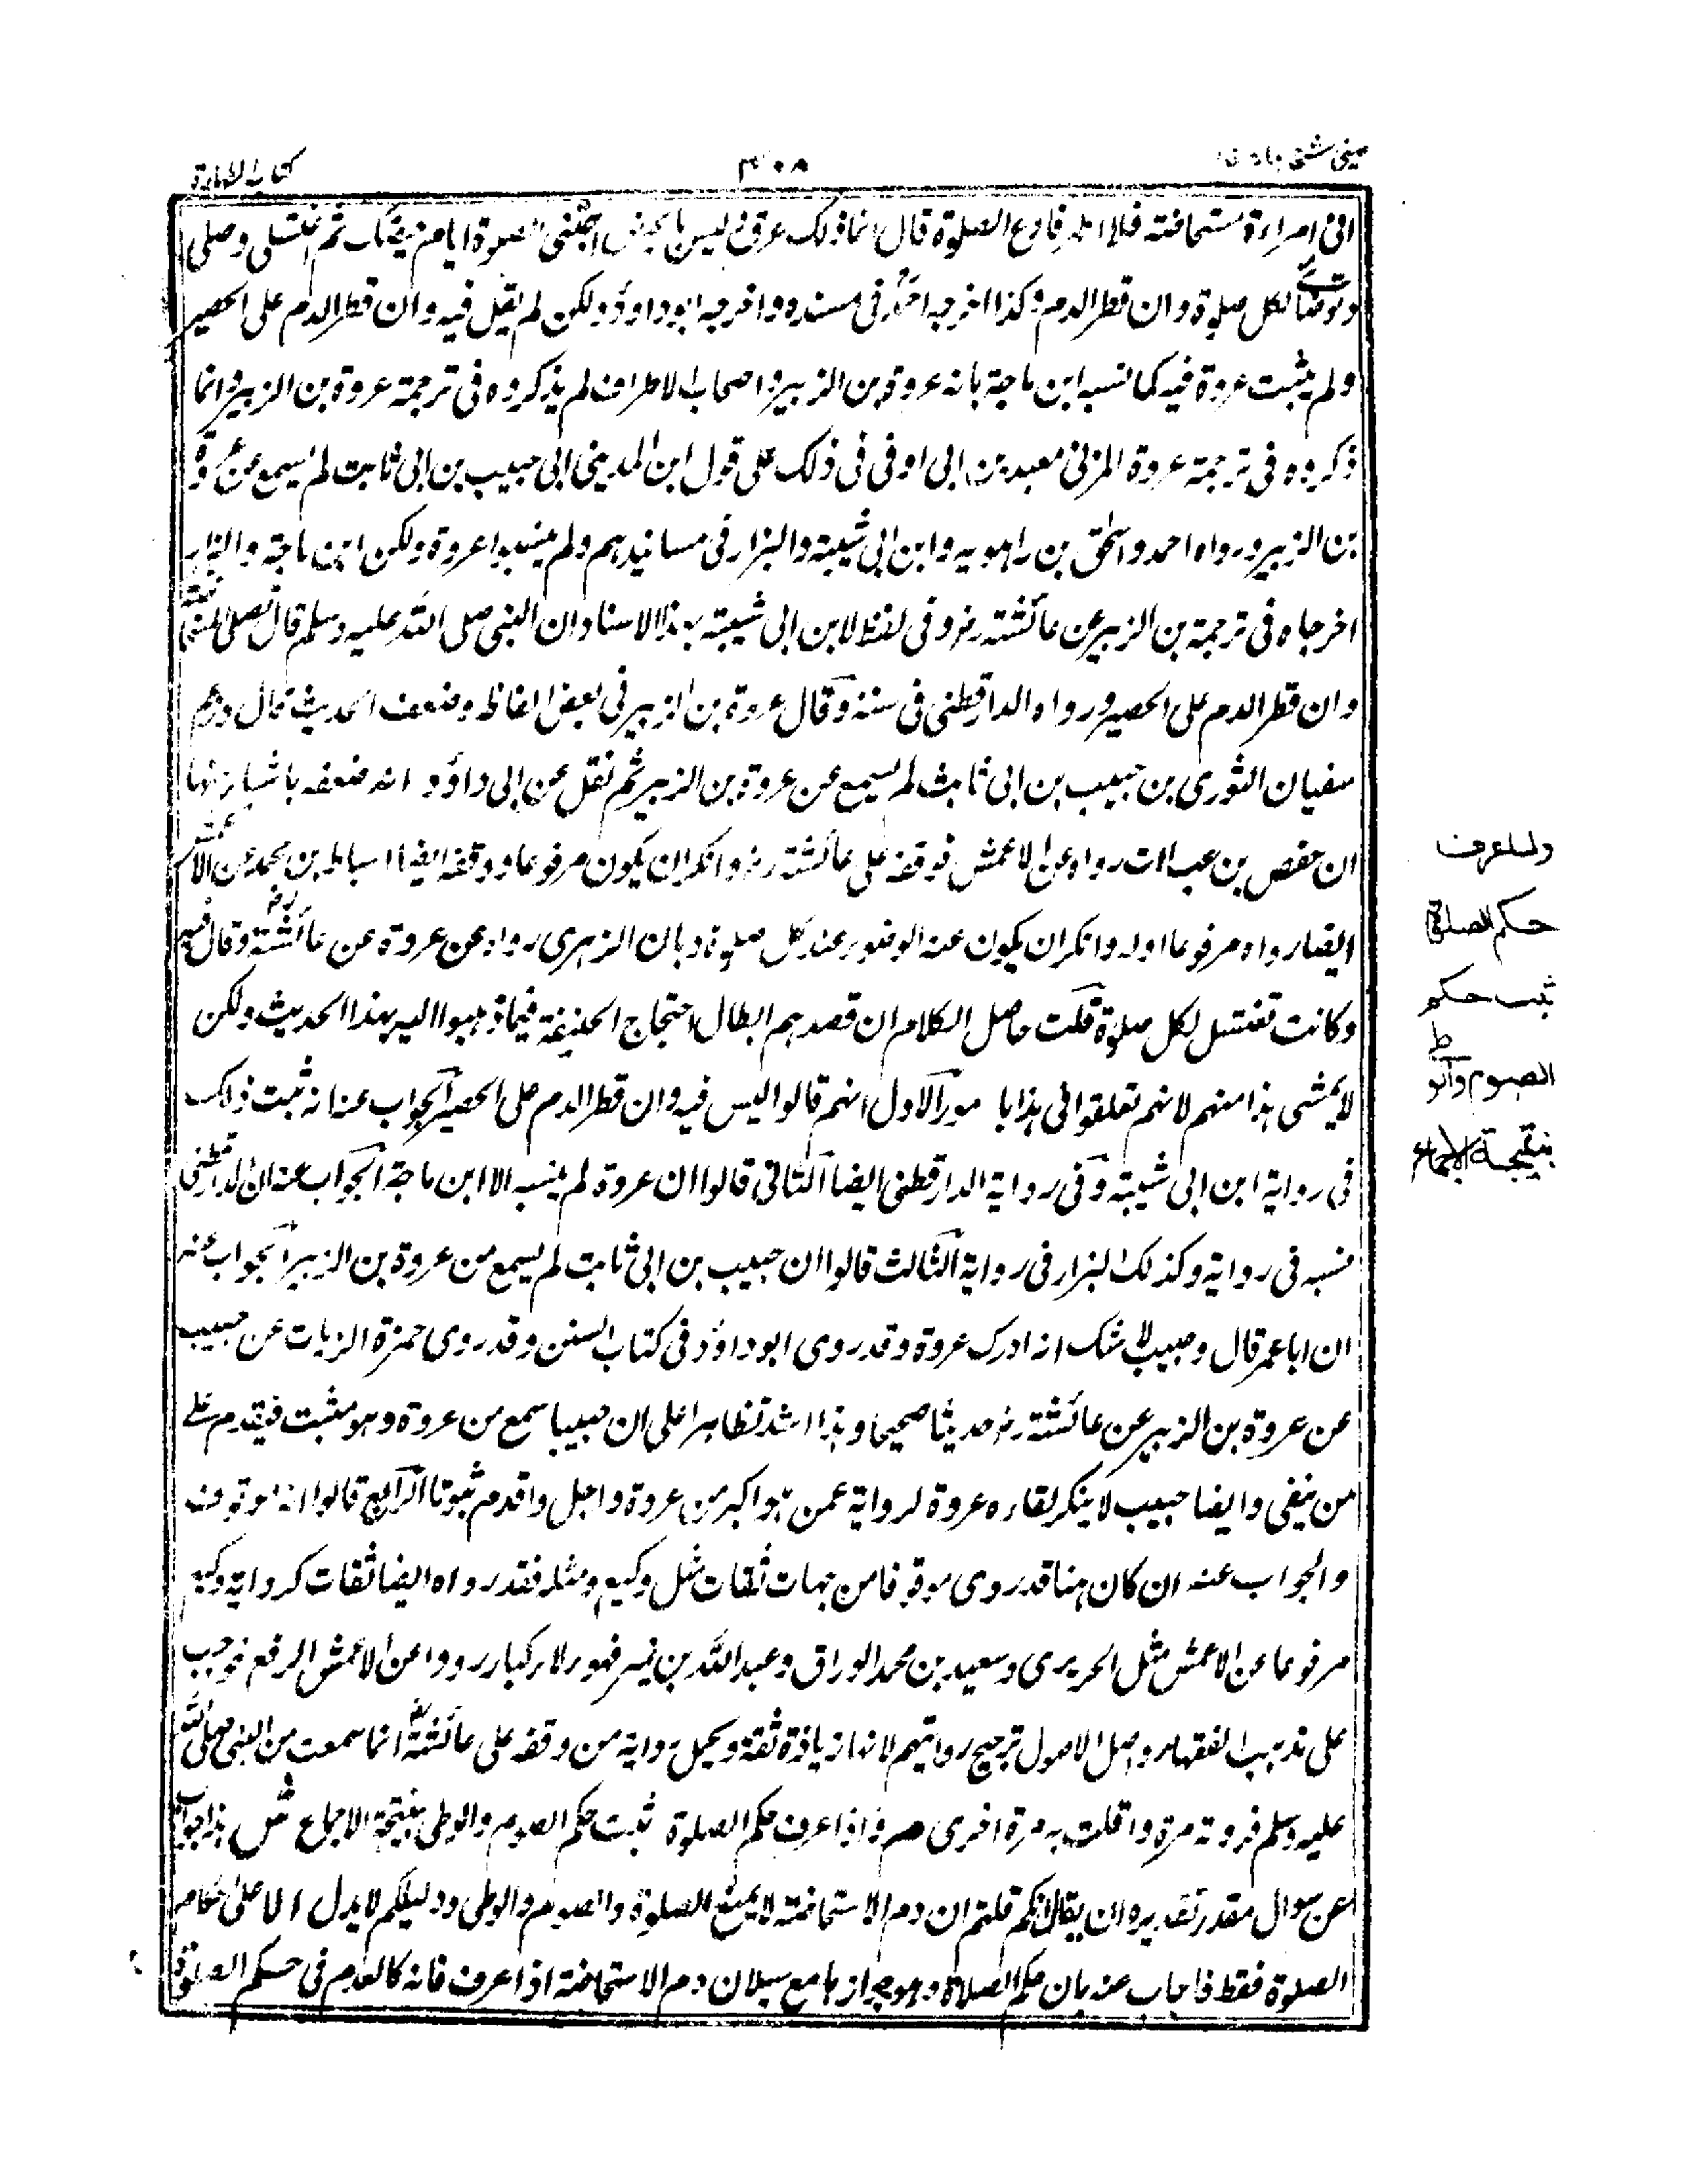 عینی شرح
٣٠٨
کتاب الطهارة
انی امراءة مستحاضة فلا اطهر فادع الصلوة قال انما ذلک عرق لیس بالحیض اجتنبی الصلوة ایام حیضک ثم اغتسلی وصلی
وتوضأی لکل صلوة وان قطر الدم وکذا اخرجه احمد فی مسنده واخرجه ابوداود ولکن لم یقل فیه وان قطر الدم علی الحصیر
ولم یثبت عروة فیه کما نسبه ابن ماجة بانه عروة بن الزبیر واصحاب الاطراف لم یذکروه فی ترجمة عروة بن الزبیر وانما
ذکروه فی ترجمة عروة المزنی معبد بن ابی اوفی فی ذلک علی قول ابن المدینی ابی حبیب بن ابی ثابت لم یسمع من عروة
بن الزبیر ورواه احمد واسحٰق بن راهویه وابن ابی شیبة والبزار فی مسانیدهم ولم ینسبوا عروة ولکن ابن ماجة والبزار
اخرجاه فی ترجمة بن الزبیر عن عائشة رض وفی لفظ لابن ابی شیبة بهذا الاسناد ان النبی صلی الله علیه وسلم قال تصلی المستحاضة
وان قطر الدم علی الحصیر ورواه الدارقطنی فی سننه وقال عروة بن الزبیر فی بعض الفاظه وضعف الحدیث قال وزعم
سفیان الثوری بن حبیب بن ابی ثابت لم یسمع من عروة بن الزبیر ثم نقل عن ابی داؤد انه ضعفه باشیاء منها
ان حفص بن رواه عن الاعمش فوقفه علی عائشة رض وانکر ان یکون مرفوعا ووقفه ایضا اسباط بن محمد عن الاعمش
ایضا رواه مرفوعا اوله وانکر ان یکون عنه الوضوء عند کل صلوة وبان الزهری رواه عن عروة عن عائشة رض وقال فیه
وکانت تغتسل لکل صلوة قلت حاصل الکلام ان قصدهم ابطال احتجاج الحنیفة فیما ذهبوا الیه بهذا الحدیث ولکن
لا یمشی هذا منهم لانهم تعلقوا فی هذا بامور الاول انهم قالوا لیس فیه وان قطر الدم علی الحصیر الجواب عنا انه ثبت ذلک
فی روایة ابن ابی شیبة وفی روایة الدارقطنی ایضا الثانی قالوا ان عروة لم ینسبه الا ابن ماجة الجواب عنه ان الدارقطنی
نسبه فی روایة وکذلک البزار فی روایة الثالث قالوا ان حبیب بن ابی ثابت لم یسمع من عروة بن الزبیر الجواب عنه
ان ابا عمر قال وحبیب لا شک انه ادرک عروة وقد روی ابوداؤد فی کتاب السنن وقد روی حمزة الزیات عن حبیب
عن عروة بن الزبیر عن عائشة رض حدیثا صحیحا وهذا اشد تظاهرا علی ان حبیبا سمع من عروة وهو مثبت فیقدم علی
من ینفی وایضا حبیب لا ینکر لقاءه عروة لروایة عمن هو اکبر من عروة واجل واقدم ثبوتا الرابع قالوا انه موقوف
والجواب عنه ان کان هنا قد روی موقوفا من جهات ثقات مثل وکیع ومثله فقد رواه ایضا ثقات کروایة وکیع
مرفوعا عن الاعمش مثل الحریری وسعید بن محمد الوراق وعبد الله بن نمیر فهؤلاء کبار رووا عن الاعمش الرفع فوجب
علی مذهب الفقهاء واهل الاصول ترجیح روایتهم لانها زیادة ثقة ویحمل روایة من وقفه علی عائشة رض انما سمعت من النبی صلی الله
علیه وسلم فروته مرة وافتت به مرة اخری صر واذا عرف حکم الصلوة ثبت حکم الصوم والوطی بنتیجة الاجماع ش هذا جواب
عن سوال مقدر تقدیره ان یقال انکم قلتم ان دم الاستحاضة لا یمنع الصلوة والصوم والوطی ودلیلکم لا یدل الا علی حکم
الصلوة فقط فاجاب عنه بان حکم الصلاة وهو جوازها مع سیلان دم الاستحاضة اذا عرف فانه کالعدم فی حکم الصلوة
ولما عرف
حکم الصلوة
ثبت حکم
الصوم والوطی
بنتیجة الاجماع